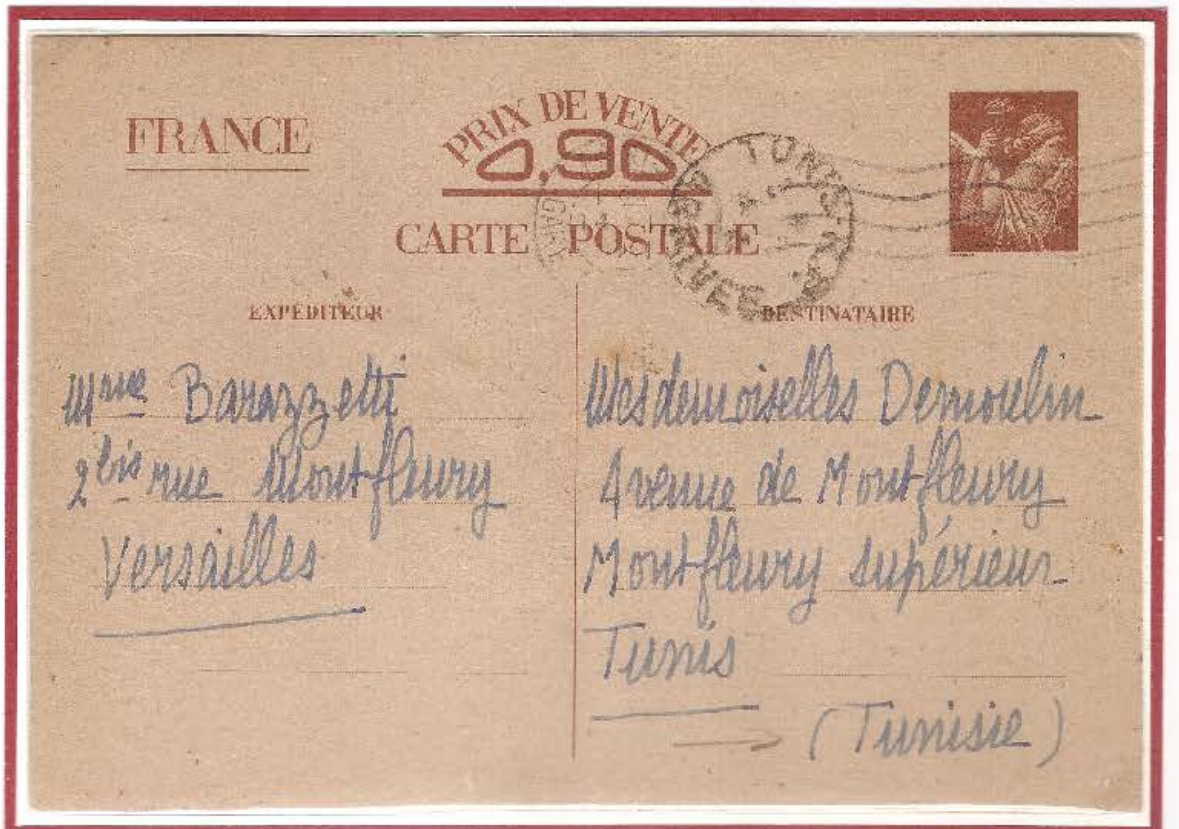 FRANCE
PRIX DE VENTE
0,90
CARTE POSTALE
TUNIS R.P.
ARRIVEE
EXPÉDITEUR
Mme Barazzetti
2 bis rue Montfleury
Versailles
DESTINATAIRE
Mesdemoiselles Demoulin
Avenue de Montfleury
Montfleury supérieur
Tunis
(Tunisie)